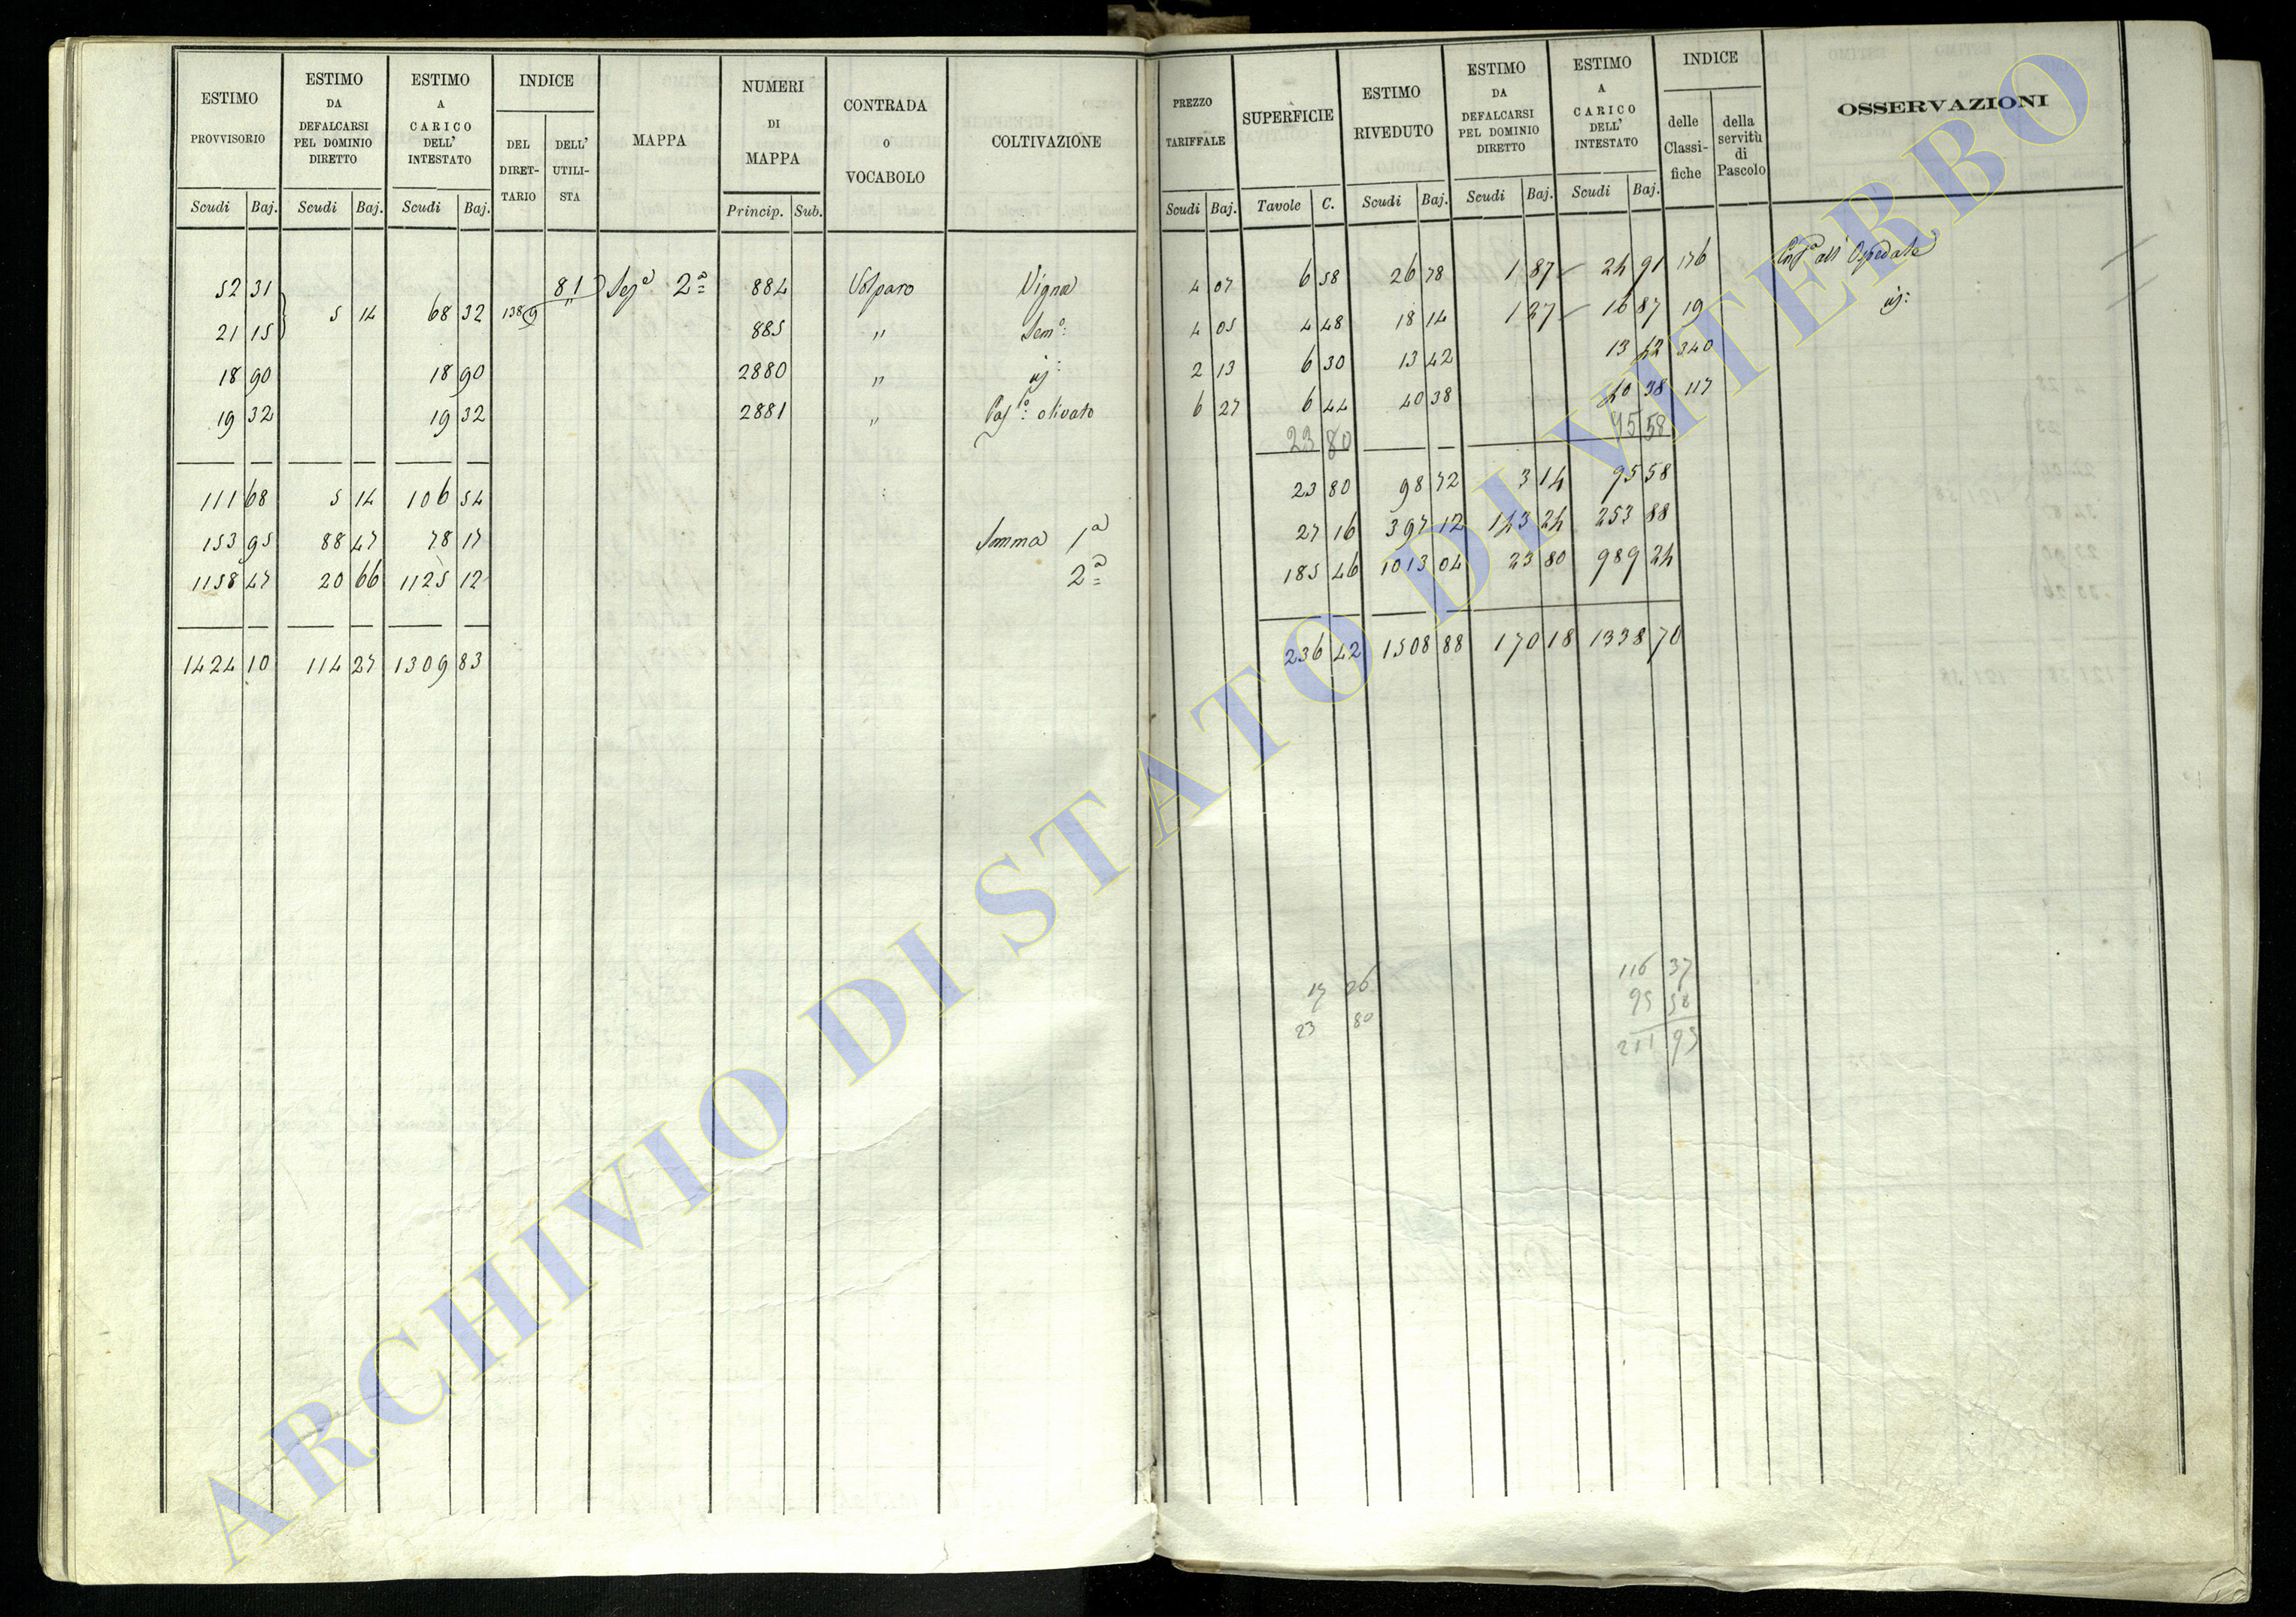 ESTIMO PROVVISORIO
ESTIMO DA DEFALCARSI PEL DOMINIO DIRETTO
ESTIMO A CARICO DELL' INTESTATO
INDICE
DEL DIRET-
TARIO
DELL' UTILI-
STA
MAPPA
NUMERI DI MAPPA
CONTRADA o VOCABOLO
COLTIVAZIONE
Scudi Baj. Scudi Baj. Scudi Baj. Princip. Sub.
PREZZO TARIFFALE
SUPERFICIE
ESTIMO RIVEDUTO
ESTIMO DA DEFALCARSI PEL DOMINIO DIRETTO
ESTIMO A CARICO DELL' INTESTATO
INDICE
delle Classi-
fiche
della servitù di Pascolo
OSSERVAZIONI
Scudi Baj. Tavole C. Scudi Baj. Scudi Baj. Scudi Baj.
52 31 81 Segª 2ª 884 Volparo Vigna 4 07 6 58 26 78 1 87 24 91 176 all' Ospedale
5 14 68 32 1389 "
21 15 885 " Semº: 4 05 4 48 18 14 1 27 16 87 19 id:
18 90 18 90 2880 " id: 2 13 6 30 13 42 13 42 340
19 32 19 32 2881 " Pasº: olivato 6 27 6 44 40 38 40 38 117
23 80 95 58
111 68 5 14 106 54 23 80 98 72 3 14 95 58
153 95 88 47 78 17 Somma 1ª 27 16 397 12 143 24 253 88
1158 47 20 66 1125 12 2ª 185 46 1013 04 23 80 989 24
1424 10 114 27 1309 83 236 42 1508 88 170 18 1338 70
17 26 116 37
23 80 95 58
211 95
ARCHIVIO DI STATO DI VITERBO